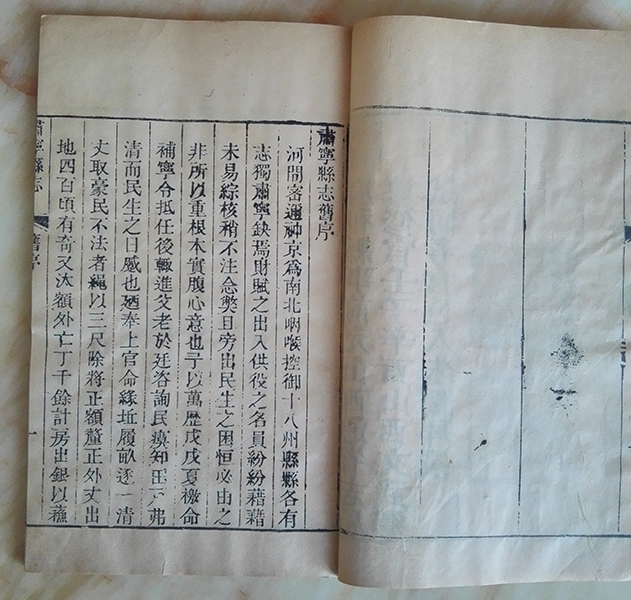 肅寧縣志舊序
河間密邇神京爲南北咽喉控御十八州縣縣各有
志獨肅寧缺焉財賦之出入供役之名員紛紛藉藉
未易綜核稍不注念獘且旁出民生之困恒必由之
非所以重根本實腹心意也予以萬歷戊戌夏檄命
補寧令抵任後輙進父老於廷咨詢民瘼知田戸弗
清而民生之日蹙也廼奉上官命緣址履畝逐一清
丈取豪民不法者繩以三尺除將正額釐正外丈出
地四百頃有奇又汰額外亡丁千餘計房出銀以蘓
肅寧縣志
舊序
一